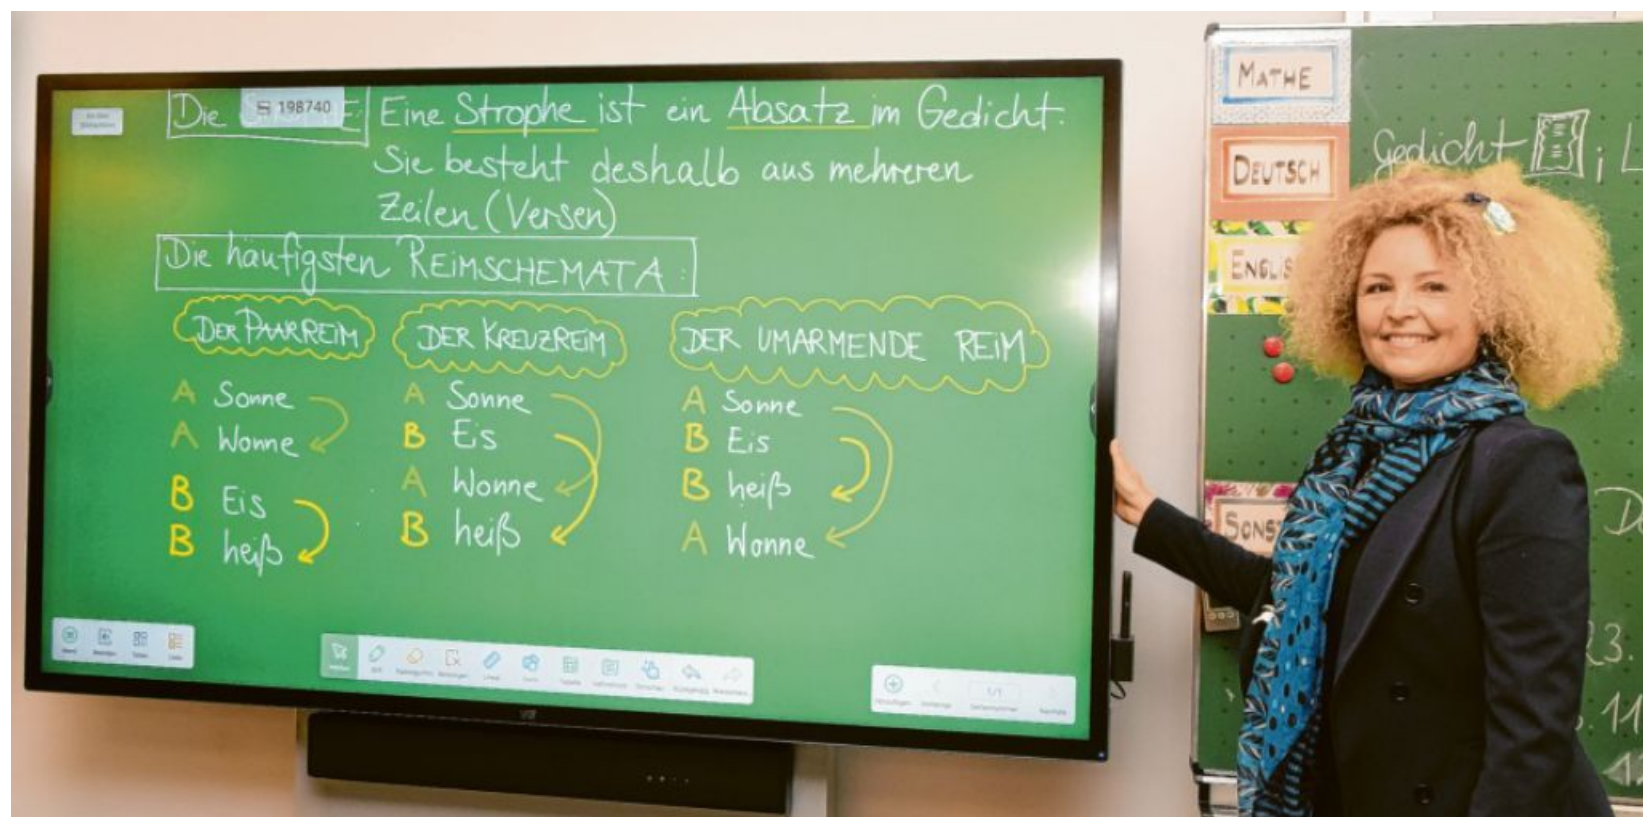 Die
198740
Eine Strophe ist ein Absatz im Gedicht.
Sie besteht deshalb aus mehreren
Zeilen (Versen)
Die häufigsten REIMSCHEMATA:
DER PAARREIM
A Sonne
A Wonne
B Eis
B heiß
DER KREUZREIM
A Sonne
B Eis
A Wonne
B heiß
DER UMARMENDE REIM
A Sonne
B Eis
B heiß
A Wonne
1/1
MATHE
DEUTSCH
ENGLIS
SONST
Gedicht ; L
D
23.
. 11